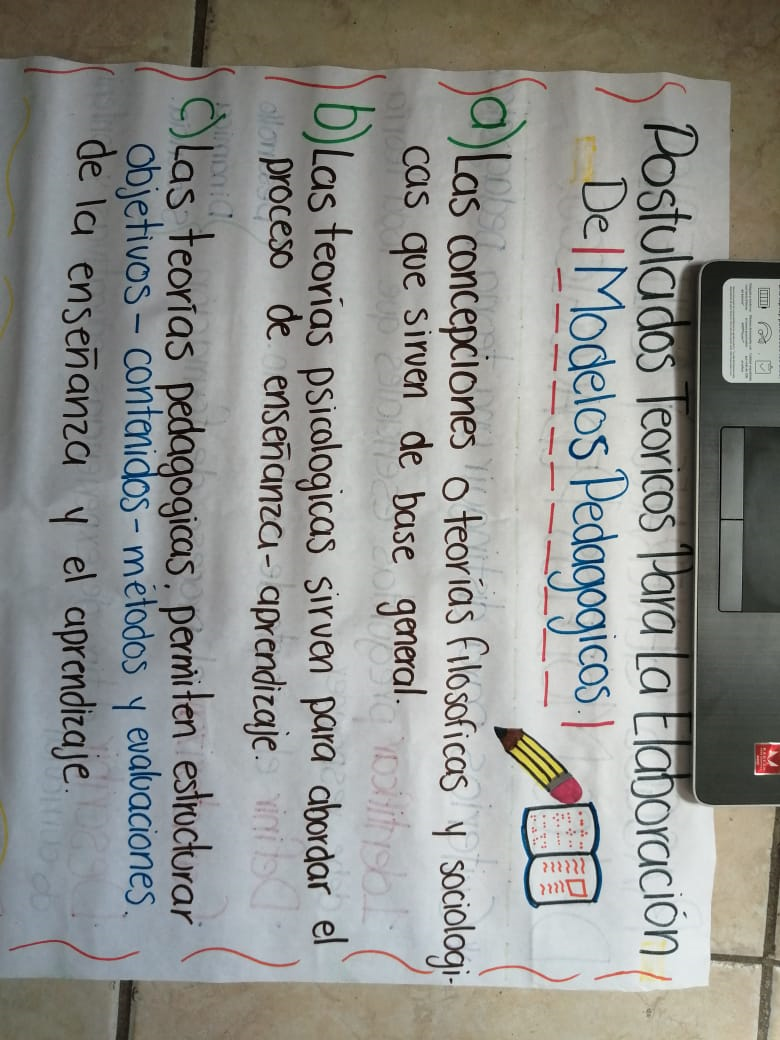 Postulados Teoricos Para La Elaboración
De Modelos Pedagogicos.
a) Las concepciones o teorías filosoficas y sociologi-
cas que sirven de base general.
b) Las teorías psicologicas sirven para abordar el
proceso de enseñanza-aprendizaje.
c) Las teorías pedagogicas, permiten estructurar
objetivos- contenidos- métodos y evaluaciones.
de la enseñanza y el aprendizaje.